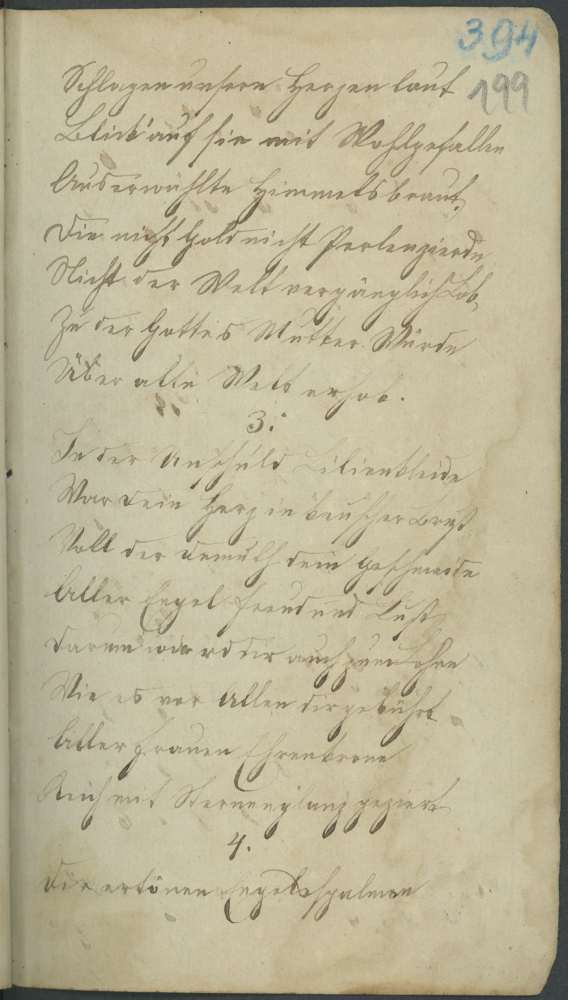 394
199
Schlagen unsere Herzen laut
Blick auf sie mit Wohlgefallen
Auserwählte Himmelsbraut,
Die nicht Gold nicht Perlenzierde
Nicht der Welt vergänglich Lob,
Zu der Gottes Mutter Würde
Über alle Welt erhob.
3.
In der Unschuld Lilienkleide
War dein Herz in keuscher Brust
Voll der Demuth dein Geschmeide
Aller Engel Freud und Lust
Darum ward dir auch zum Lohne
Wie es vor Allen dir gebührt
Aller Frauen Ehrenkrone
Reich mit Sternenglanz geziert
4.
Dir ertönen Engelspalmen